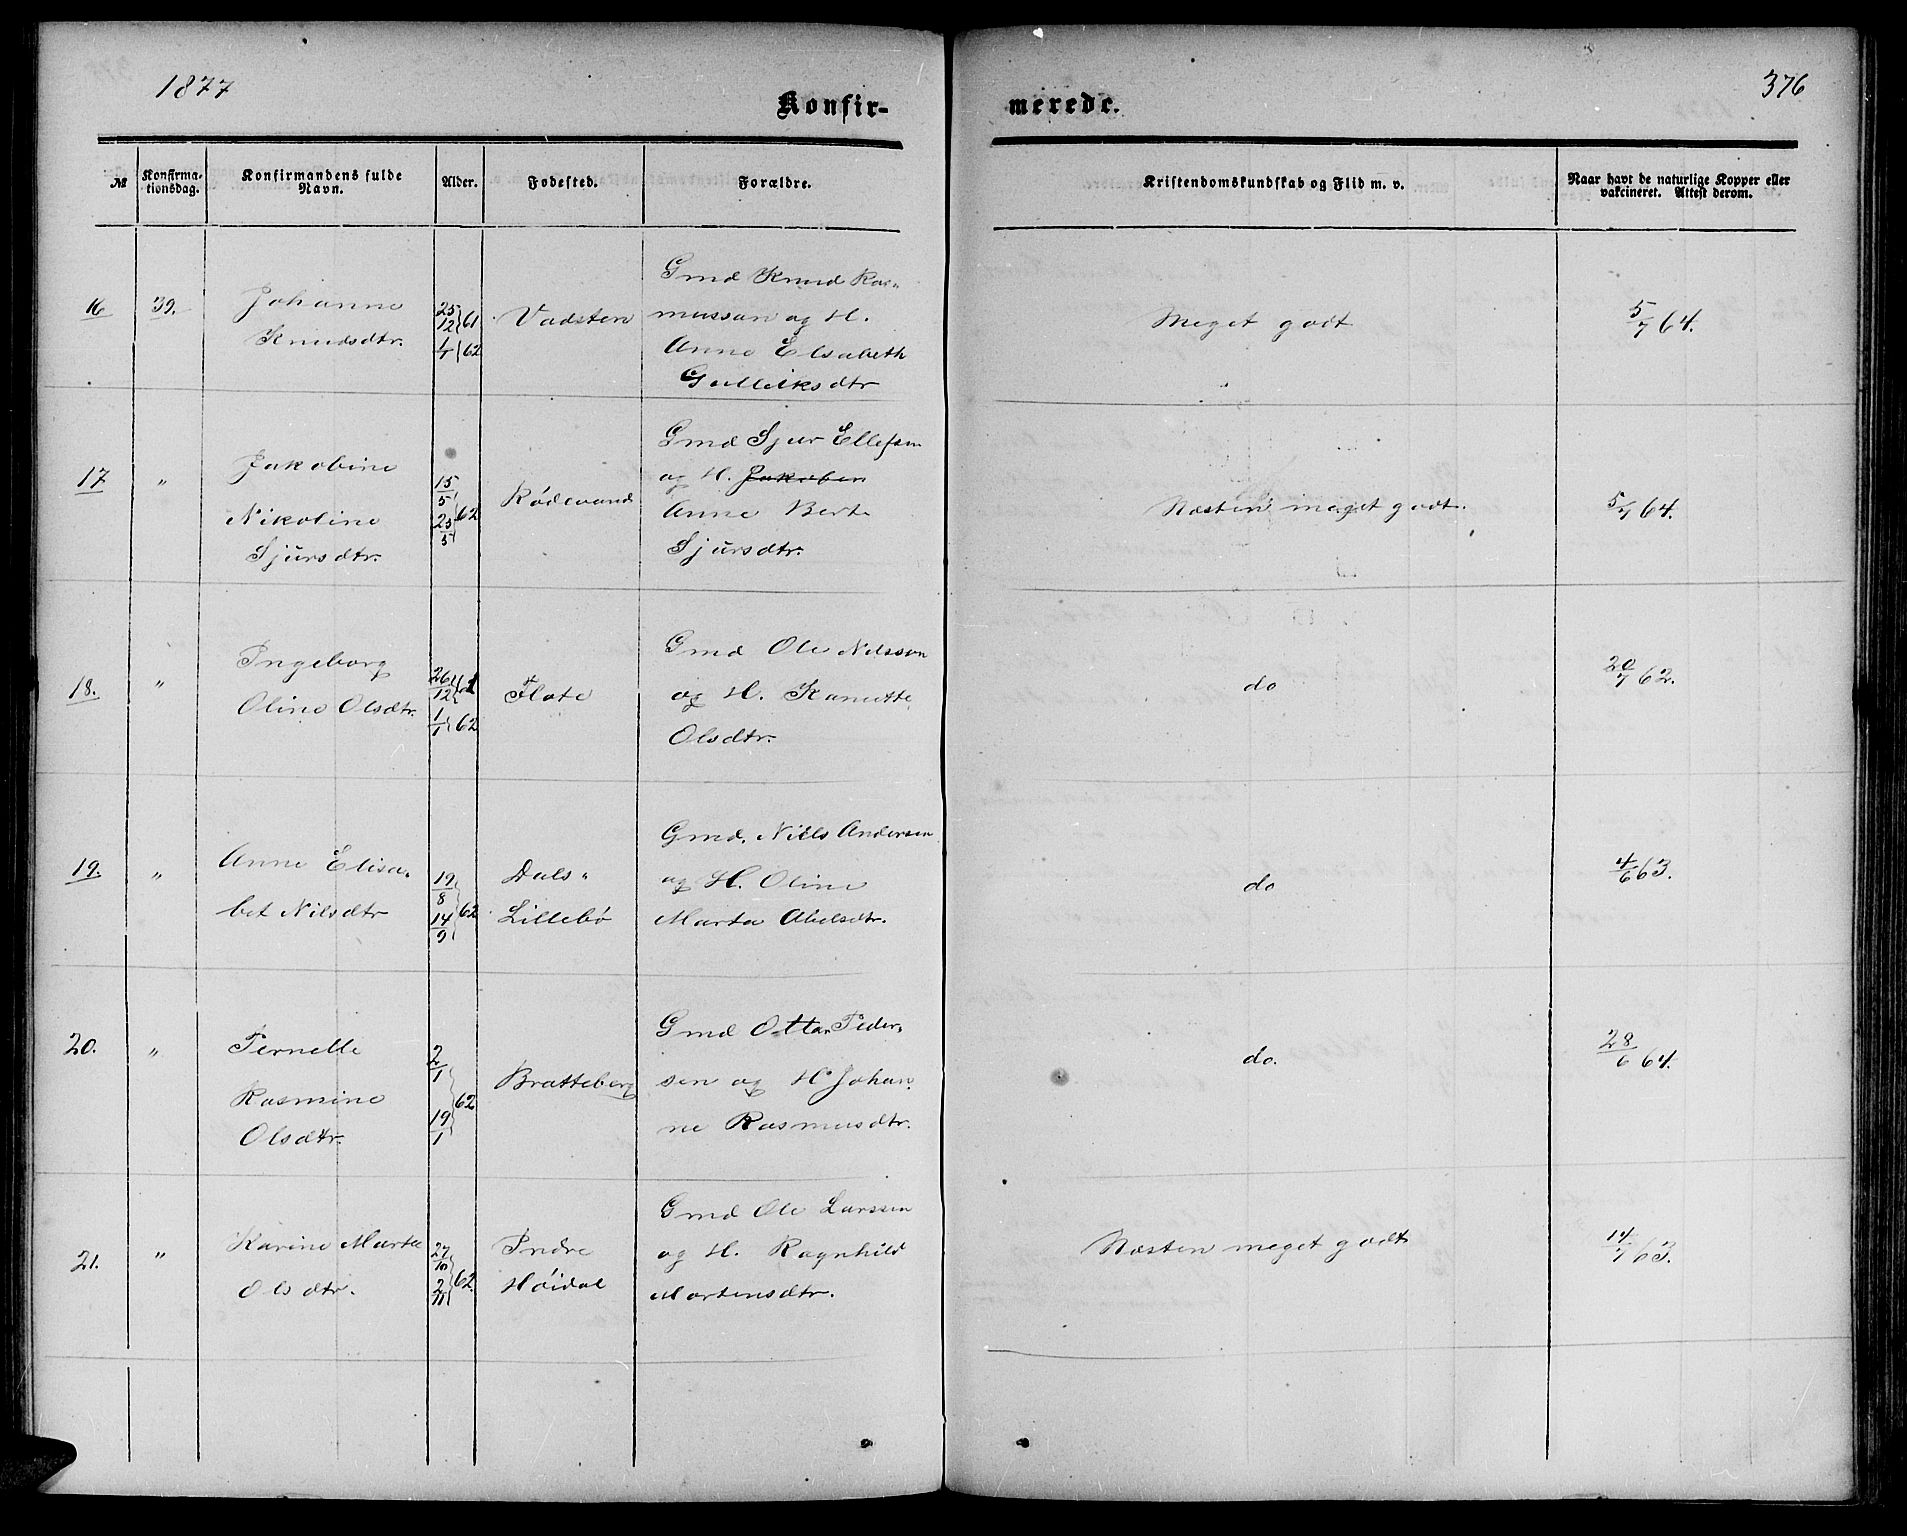 1877
376
Konfir-
merede.
№
Konfirma-
tionsdag.
Konfirmandens fulde
Navn.
Alder.
Fødested.
Forældre.
Kristendomskundskab og Flid m. v.
Naar havt de naturlige Kopper eller
vakcineret. Attest derom.
16
Johanne
Knudsdtr.
25/12 61
1/1 62
Vadsten
Gmd Knud Ras-
mussan og H.
Anne Elsabeth
Gulleiksdtr
Meget godt
5/7 64.
17 "
Jakobine
Nikoline
Sjursdtr.
15/5
25/5 62
Rødevand
Gmd Sjur Ellefsen
og H. Jakoben
Anne Berte
Sjursdtr.
Næsten meget godt.
5/7 64.
18. "
Ingeborg
Oline Olsdtr.
26/12 61
1/1 62
Flote
Gmd Ole Nilsson
og H. Kanutte
Olsdtr.
do
20/7 62.
19. "
Anne Elisa-
bet Nilsdtr
19/8
14/9 62
Dals-
Lillebø
Gmd. Nills Andersen
og H. Oline
Marta Abelsdtr.
do
4/6 63.
20. "
Pernelle
Rasmine
Olsdtr.
2/1
19/1 62
Bratteberg
Gmd Ottar Peder-
sen og H Johan
ne Rasmusdtr.
do.
28/6 64.
21. "
Karine Marta
Olsdtr.
27/10
2/11 62.
Indre
Høidal
Gmd Ole Larssen
og H. Ragnhild
Martensdtr.
Næsten meget godt
14/7 63.